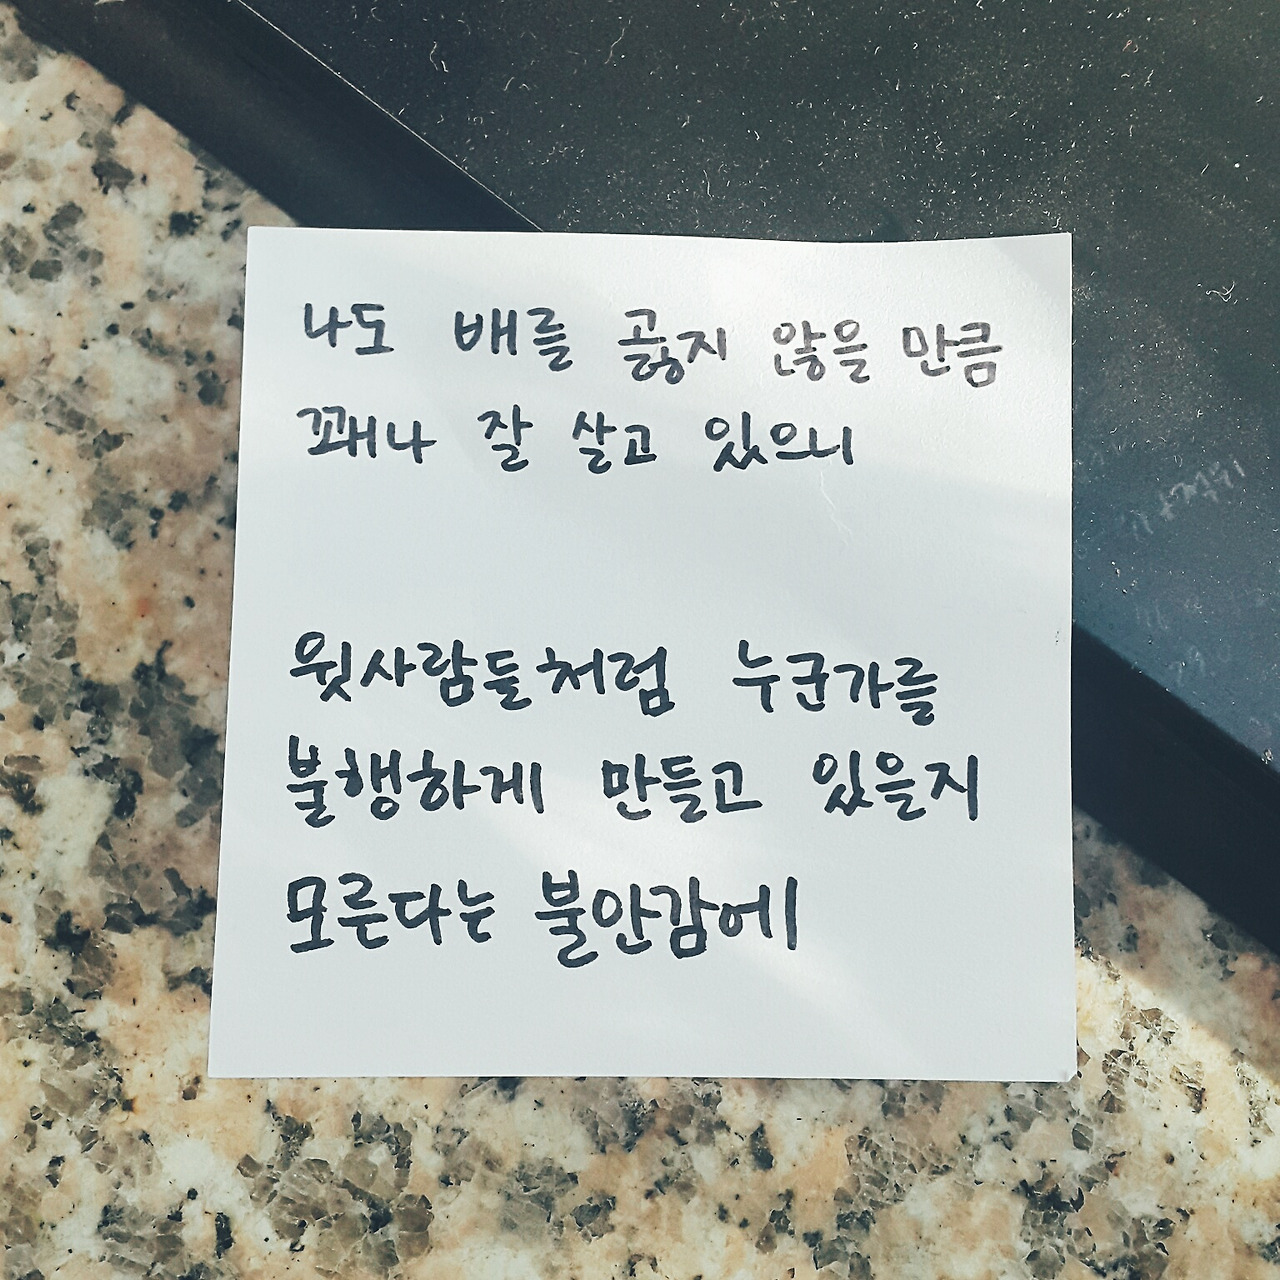 나도 배를 곯지 않을 만큼
꽤나 잘 살고 있으니
윗사람들처럼 누군가를
불행하게 만들고 있을지
모른다는 불안감에